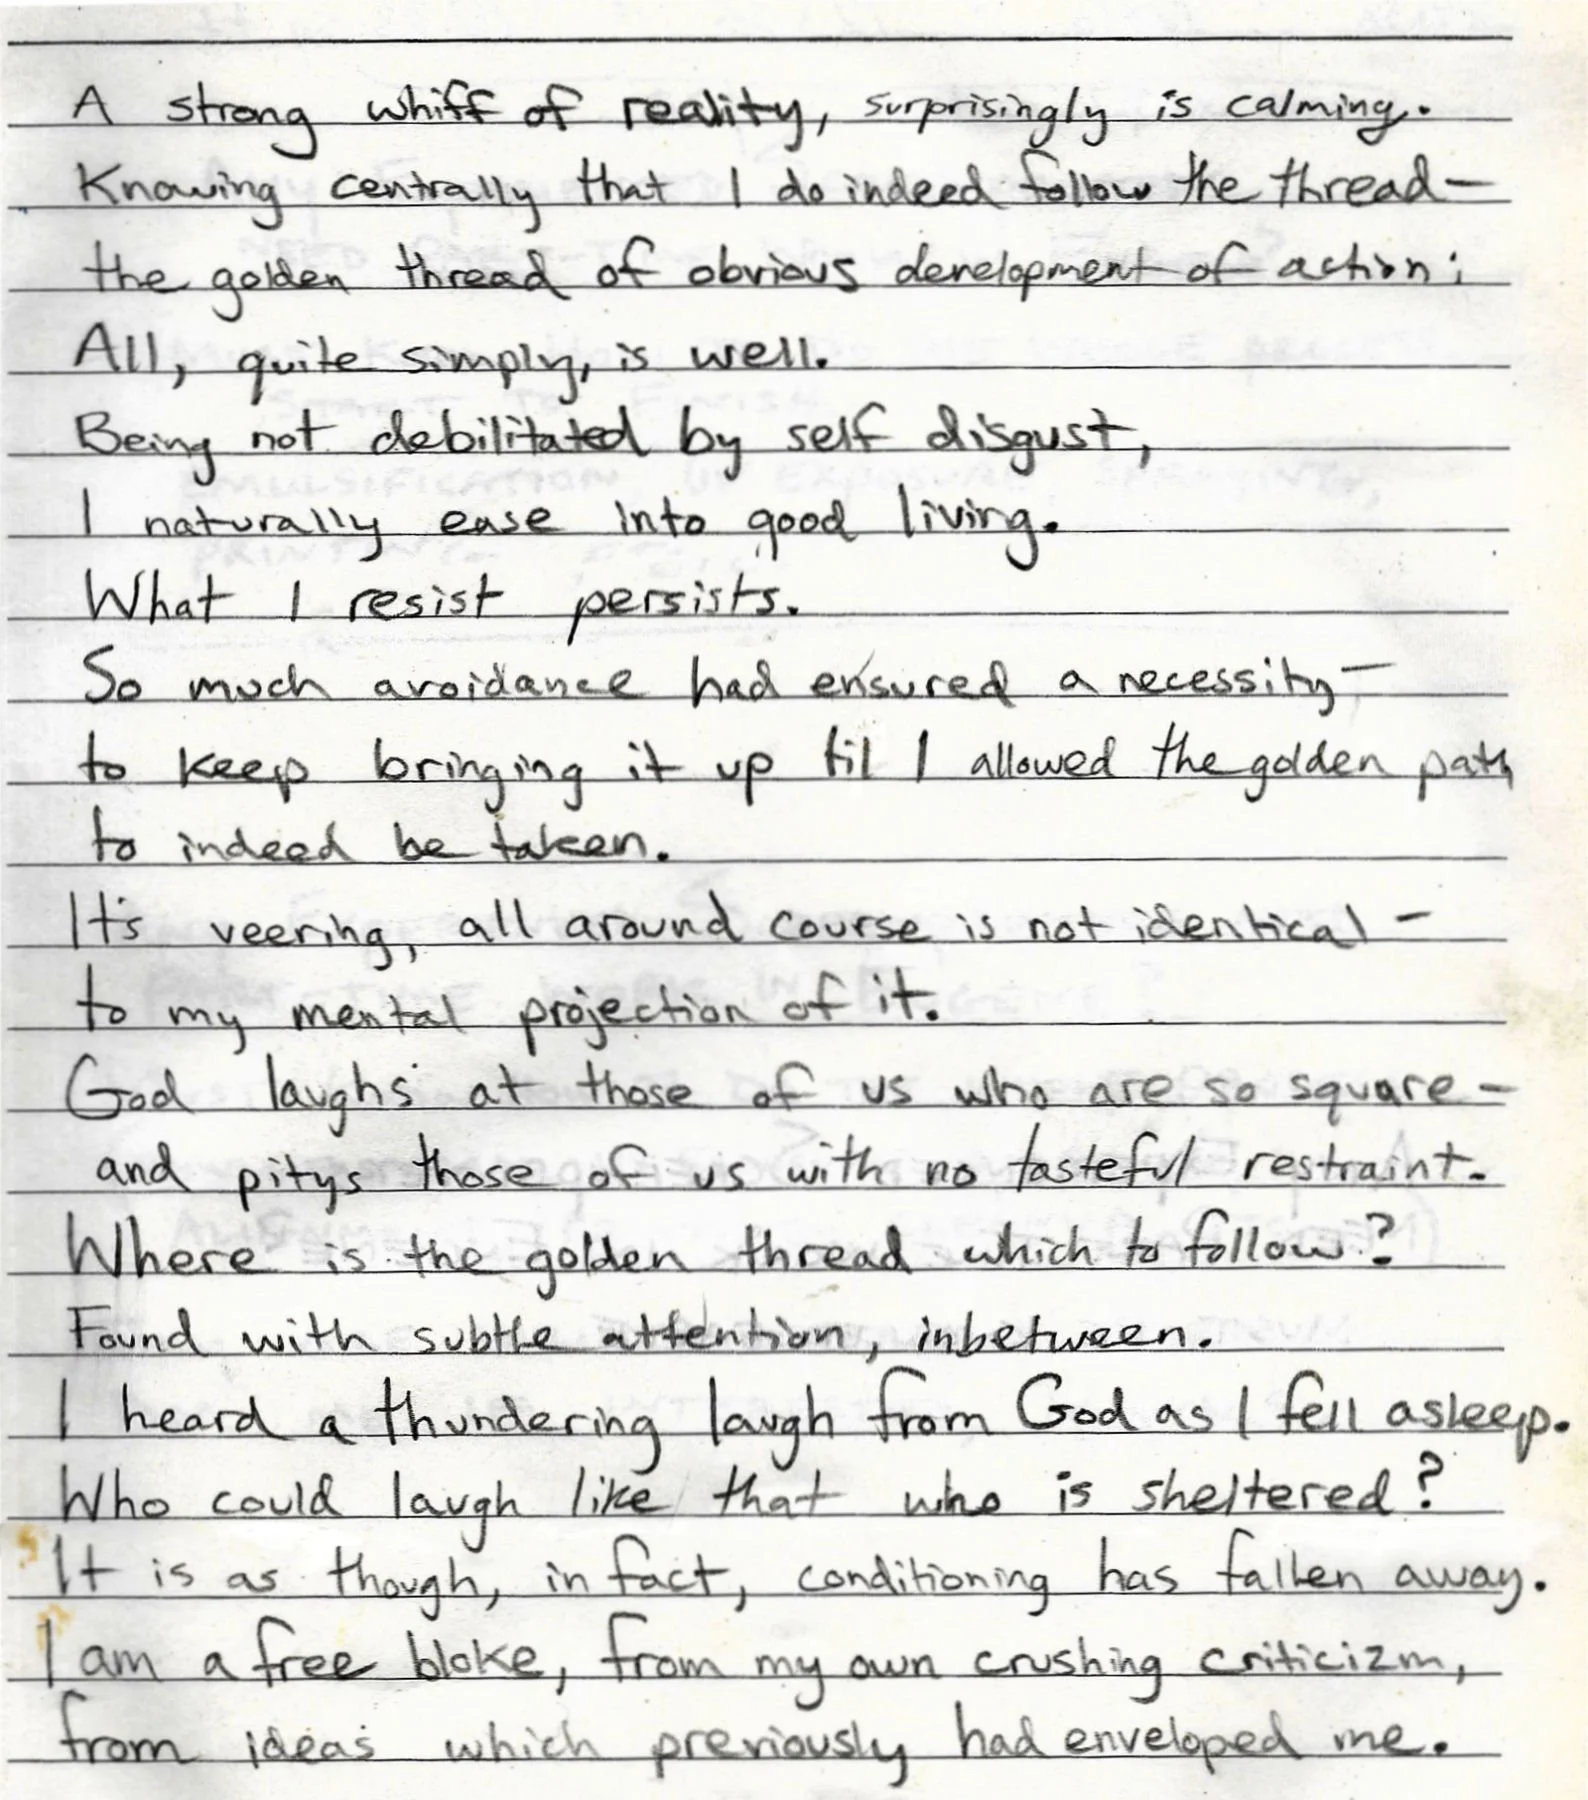 A strong whiff of reality, surprisingly is calming.
Knowing centrally that I do indeed follow the thread—
the golden thread of obvious development of action:
All, quite simply, is well.
Being not debilitated by self disgust,
I naturally ease into good living.
What I resist persists.
So much avoidance had ensured a necessity—
to keep bringing it up til I allowed the golden path
to indeed be taken.
It's veering, all around course is not identical —
to my mental projection of it.
God laughs at those of us who are so square —
and pitys those of us with no tasteful restraint.
Where is the golden thread which to follow?
Found with subtle attention, inbetween.
I heard a thundering laugh from God as I fell asleep.
Who could laugh like that who is sheltered?
It is as though, in fact, conditioning has fallen away.
I am a free bloke, from my own crushing criticizm,
from ideas which previously had enveloped me.